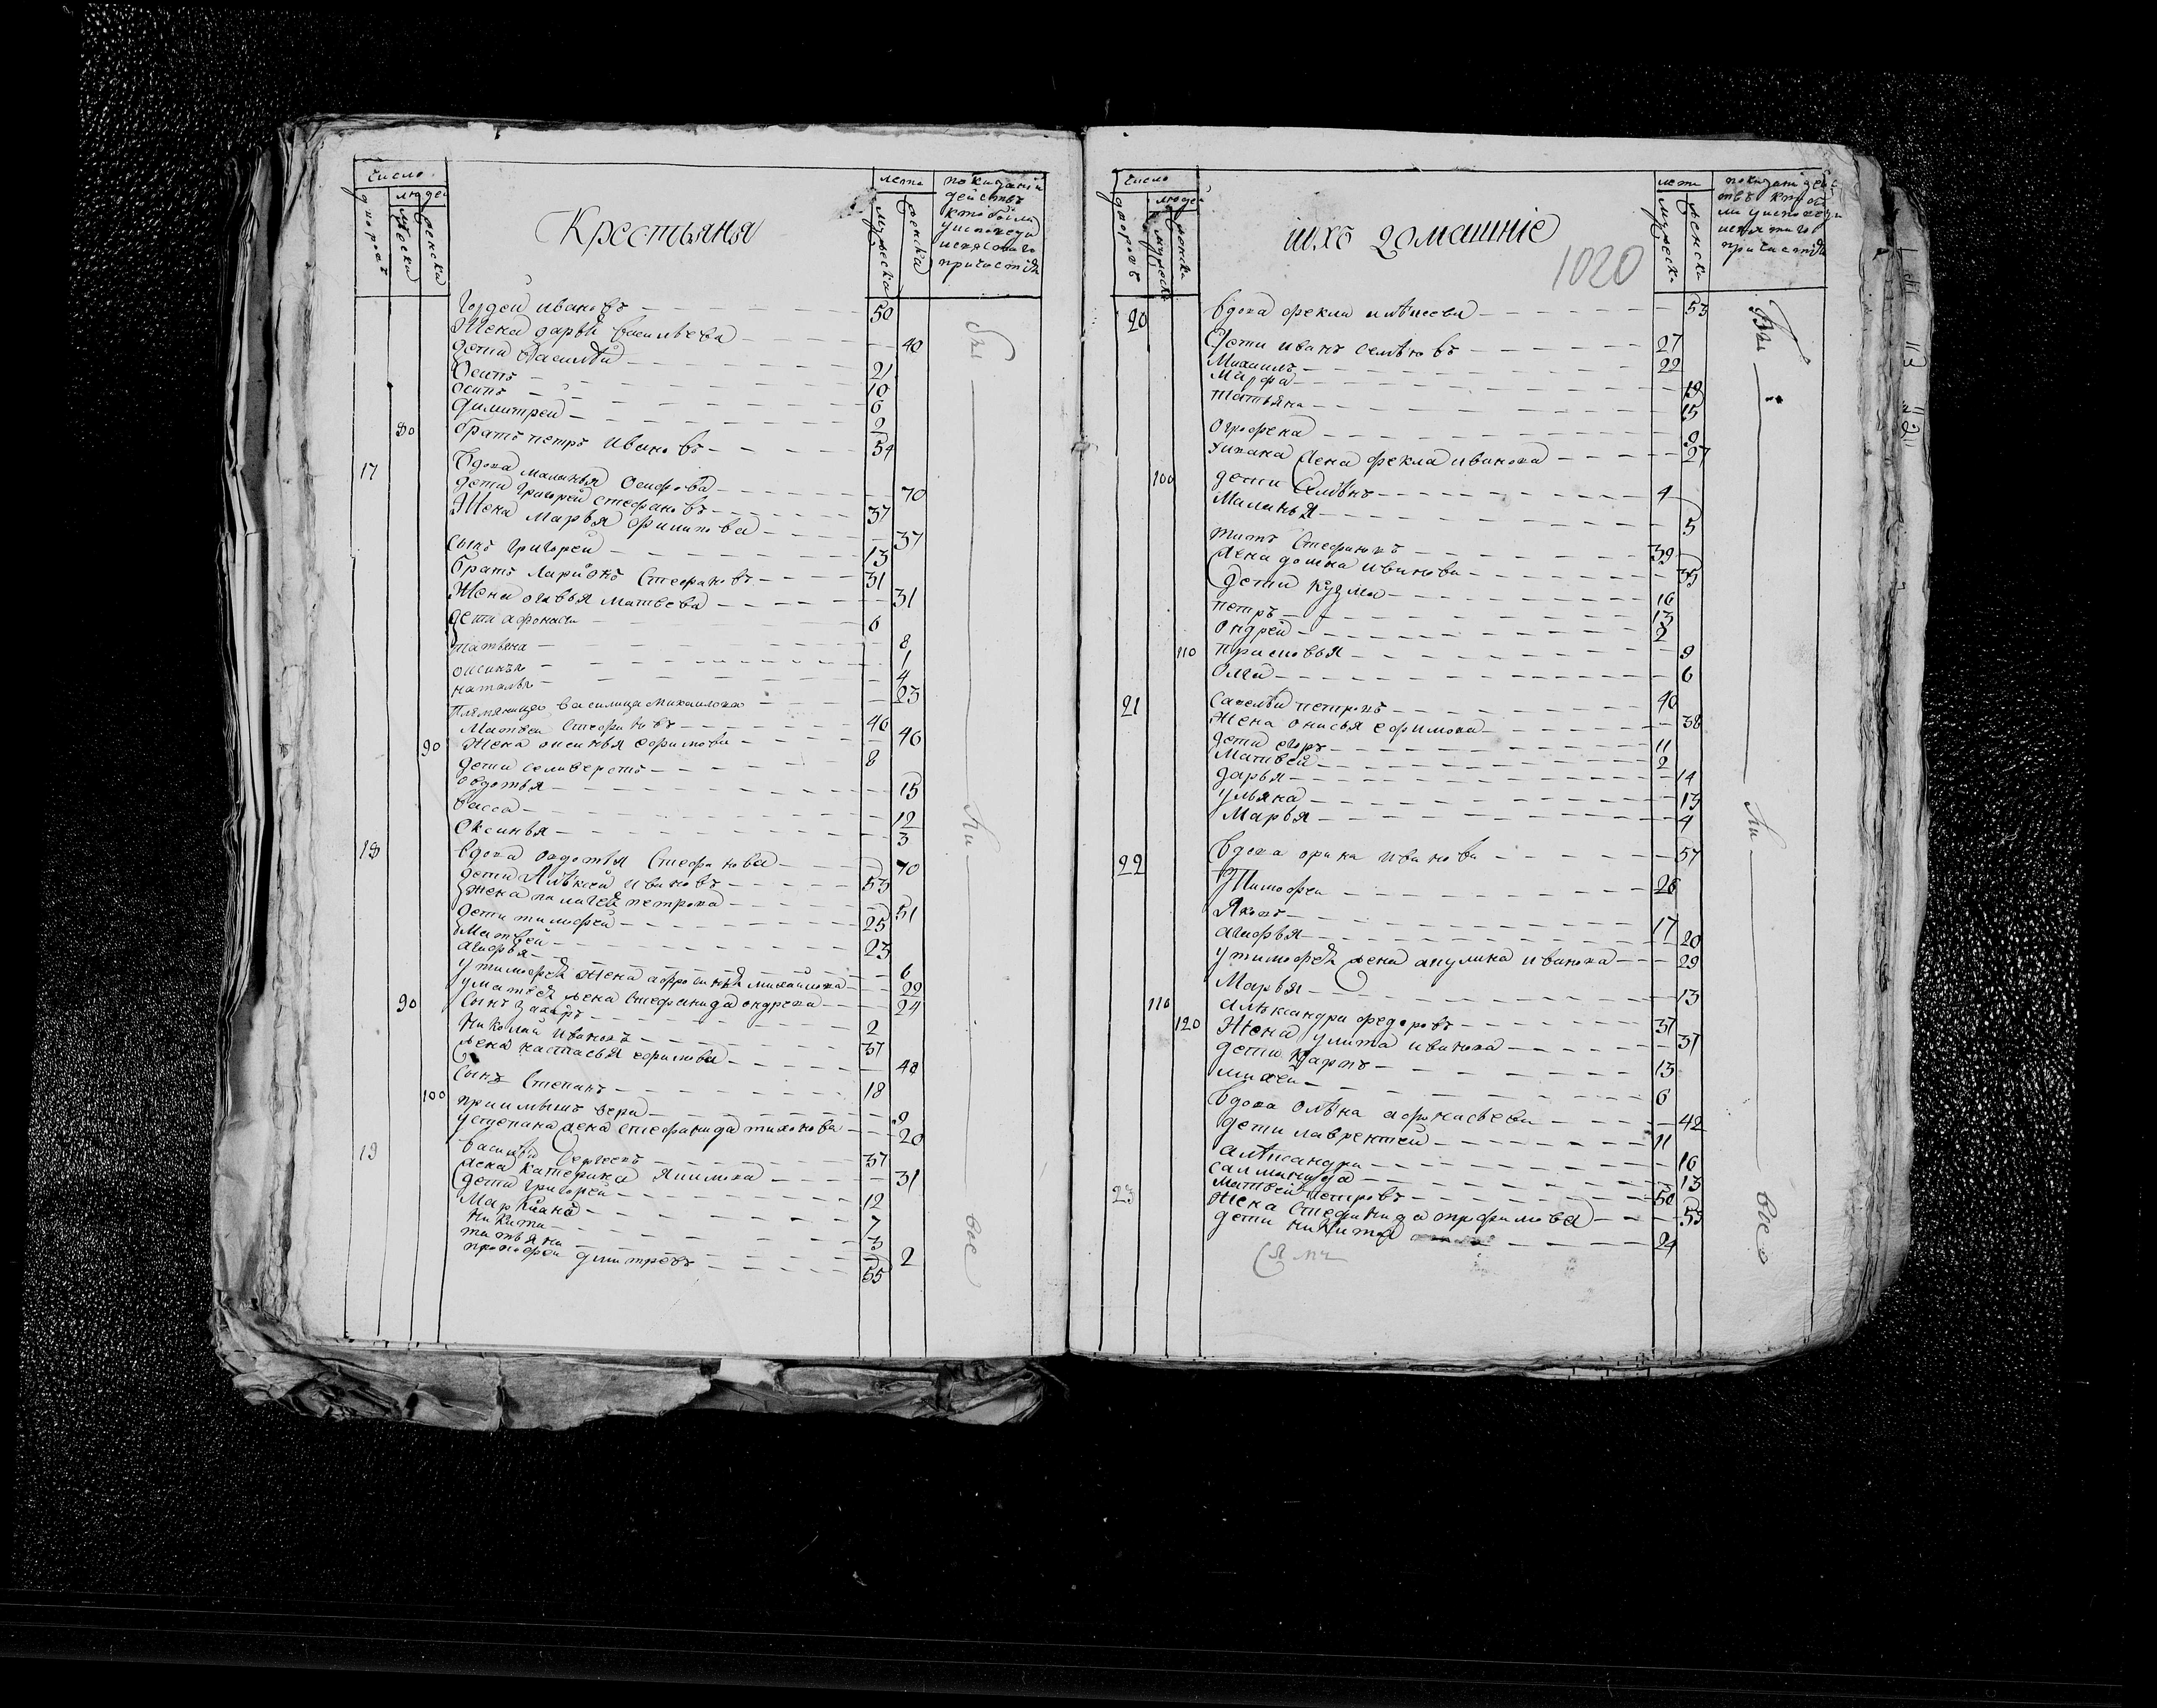 число
людей
дворовъ
мужеска
женска
Крестьяня
лета
мужеска
женска
показаніи
действъ
кто были
у исповеди
и святого
причастія
Гордей Ивановъ 50
Жена дарья васильева 40
дети Василей 21
Осипъ 10
Осипъ 6
димитрей 2
80 братъ петръ Ивановъ 54
17 вдова маланья Осифова 70
дети Григорей стефановъ 37
Жена Марья филипова 37
сынъ григорей 13
братъ Ларионъ Стефановъ 31
Жена Матвеева 31
дети афонасей 6
татьяна 8
1
наталья 4
племяница василиса михаилова 23
Матвей Стефановъ 46
90 Жена ефимова 46
дети селиверстъ 8
овдотья 15
васса 12
Оксинья 3
18 вдова овдотья Стефанова 70
дети Алѣксей Ивановъ 53
жена петрова 51
дети тимофей 25
Матвей 23
агафья 6
у тимофея жена михаилова 22
у матвея жена Стефанида ондрева 24
90 сынъ захаръ 2
Николай Ивановъ 37
жена настасья ефимова 40
Сынъ Степанъ 18
100 вера 9
у степана жена стефанида тихонова 20
19 василей 37
жена катерина 31
дети григорей 12
7
Никита 3
татьяна 2
димитревъ 55
Бы
ли
все
число
людей
дворовъ
мужеска
женска
ихъ домашніе
1020
лета
мужеска
женска
показани дейс
твъ кто бы
ли у исповеди
и святаго
причастія
20 вдова фекла 53
Дети иванъ семѣновъ 27
Михаилъ 22
Марфа 19
татьяна 15
огрофена 9
у ивана жена фекла иванова 27
100 дети 4
Маланья 5
титъ Стефановъ 39
жена домна иванова 35
дети кузма 16
петръ 13
ондрей 2
110 прасковья 9
Олга 6
21 савелей петровъ 40
Жена онисья ефимова 38
дети егоръ 11
Матвей 2
дарья 14
ульяна 13
Марья 4
22 вдова орина иванова 57
Тимофеи 26
Яковъ 17
агафья 20
у тимофея жена акулина иванова 29
Марья 13
110 алѣксандра федоровъ 37
120 Жена улита иванова 37
дети карпъ 13
михеи 6
вдова олѣна афонасьева 42
дети лаврентей 11
алѣксандра 16
саламанида 13
23 Матвей петровъ 50
Жена Стефанида трофимова 53
дети никита 24
Бы
ли
все